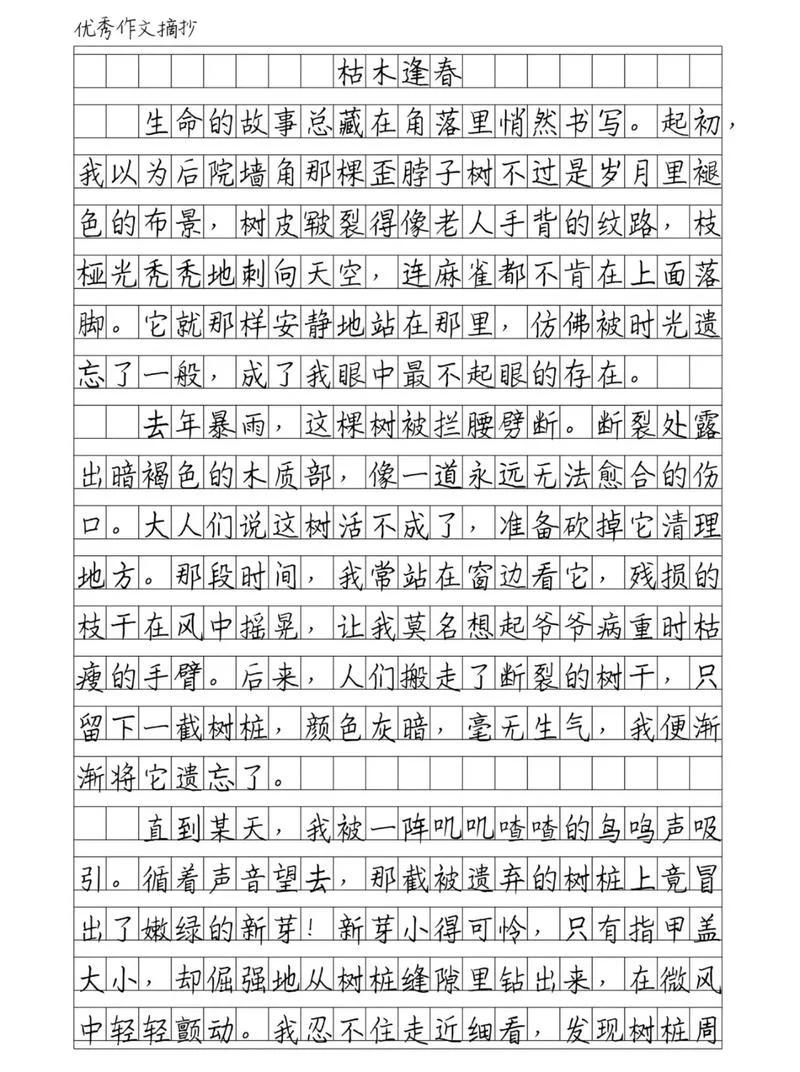 优秀作文摘抄
枯木逢春
生命的故事总藏在角落里悄然书写。起初，
我以为后院墙角那棵歪脖子树不过是岁月里褪
色的布景，树皮皲裂得像老人手背的纹路，枝
桠光秃秃地刺向天空，连麻雀都不肯在上面落
脚。它就那样安静地站在那里，仿佛被时光遗
忘了一般，成了我眼中最不起眼的存在。
去年暴雨，这棵树被拦腰劈断。断裂处露
出暗褐色的木质部，像一道永远无法愈合的伤
口。大人们说这树活不成了，准备砍掉它清理
地方。那段时间，我常站在窗边看它，残损的
枝干在风中摇晃，让我莫名想起爷爷病重时枯
瘦的手臂。后来，人们搬走了断裂的树干，只
留下一截树桩，颜色灰暗，毫无生气，我便渐
渐将它遗忘了。
直到某天，我被一阵叽叽喳喳的鸟鸣声吸
引。循着声音望去，那截被遗弃的树桩上竟冒
出了嫩绿的新芽！新芽小得可怜，只有指甲盖
大小，却倔强地从树桩缝隙里钻出来，在微风
中轻轻颤动。我忍不住走近细看，发现树桩周